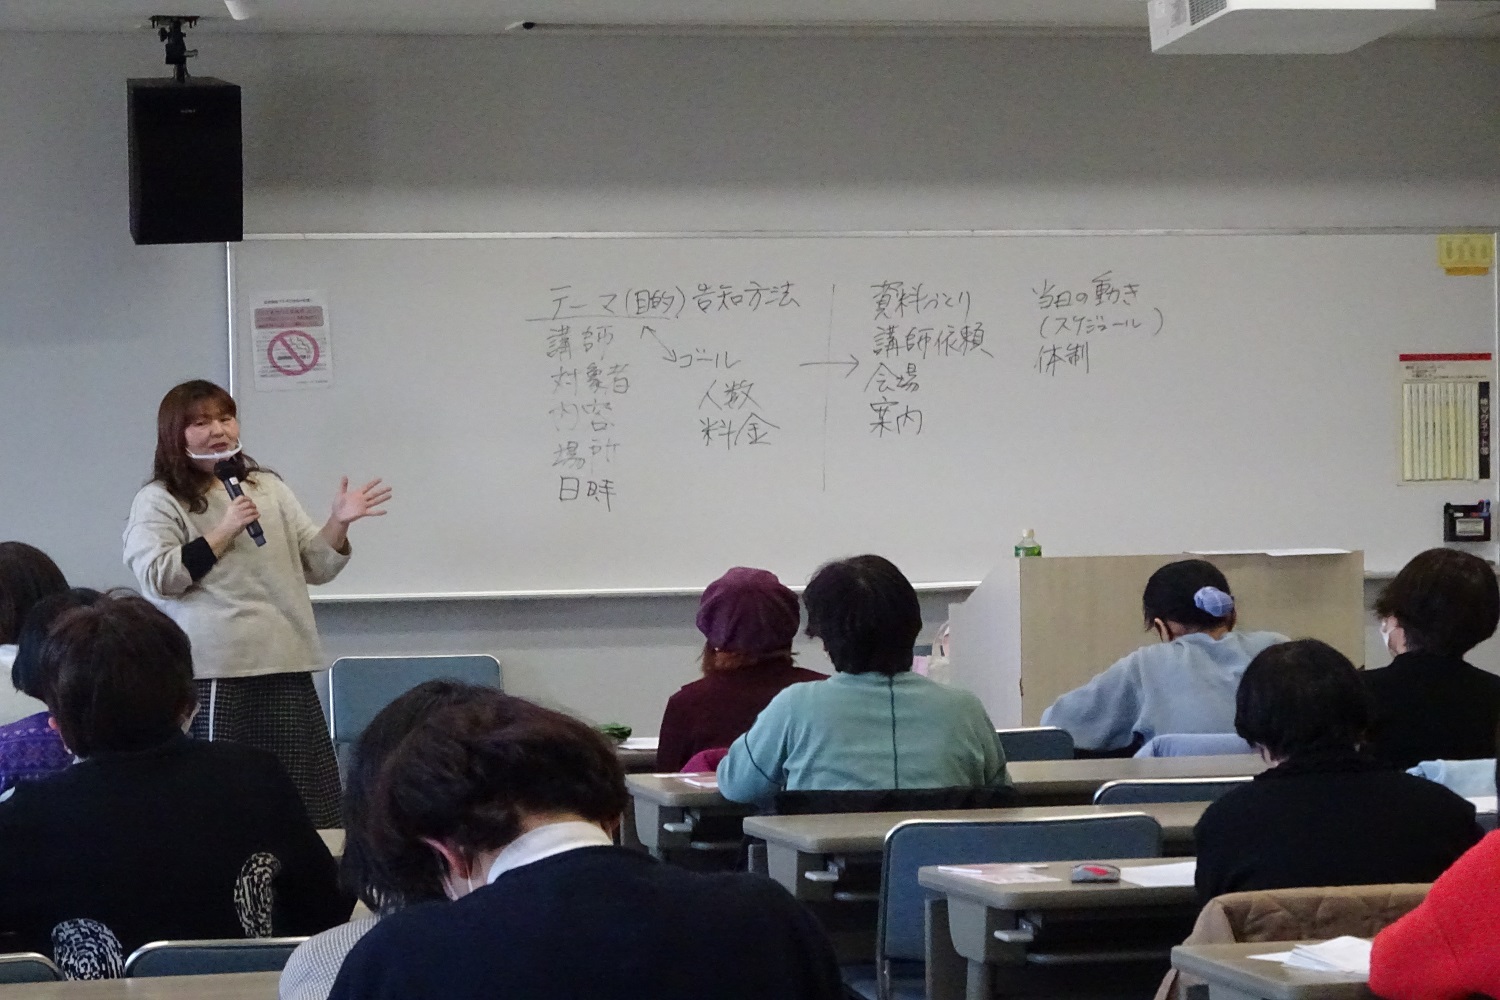 テーマ(目的)
講師
対象者
内容
場所
日時
告知方法
ゴール
人数
料金
資料づくり
講師依頼
会場
案内
当日の動き
(スケジュール)
体制